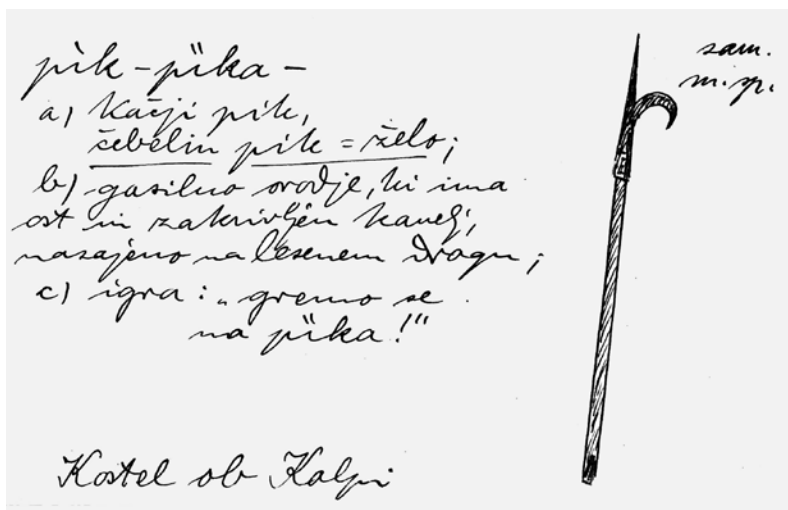 pı̏k – pȉka –
sam.
m. sp.
a) kačji pik,
čebelin pik = želo;
b) gasilno orodje, ki ima
ost in zakrivljen kavelj,
nasajeno na lesenem drogu;
c) igra: „gremo se
na pȉka!“
Kostel ob Kolpi